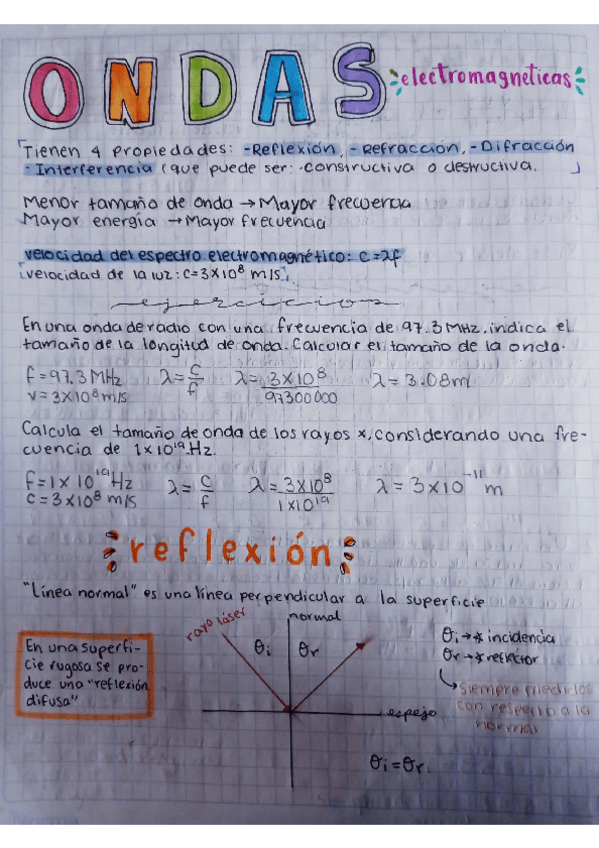 ONDAS electromagneticas
Tienen 4 propiedades: -Reflexión, -Refracción, -Difracción
-Interferencia (que puede ser: constructiva o destructiva.
Menor tamaño de onda → Mayor frecuencia
Mayor energía → Mayor frecuencia
velocidad del espectro electromagnético: c=λf
velocidad de la luz: c=3X10⁸ m/s
ejercicios
En una onda de radio con una frecuencia de 97.3 MHz, indica el
tamaño de la longitud de onda. Calcular el tamaño de la onda.
f=97.3 MHz λ=c/f λ=3X10⁸/97300000 λ=3.08m
v=3X10⁸ m/s
Calcula el tamaño de onda de los rayos x, considerando una fre-
cuencia de 1x10¹⁹ Hz.
f=1X10¹⁹ Hz λ=c/f λ=3X10⁸/1X10¹⁹ λ=3X10⁻¹¹ m
c=3X10⁸ m/s
reflexión
"Línea normal" es una línea perpendicular a la superficie
rayo láser
normal
θi θr
espejo
θi=θr
En una superfi-
cie rugosa se pro-
duce una "reflexión
difusa"
θi → incidencia
θr → reflector
siempre medidos
con respecto a la
normal